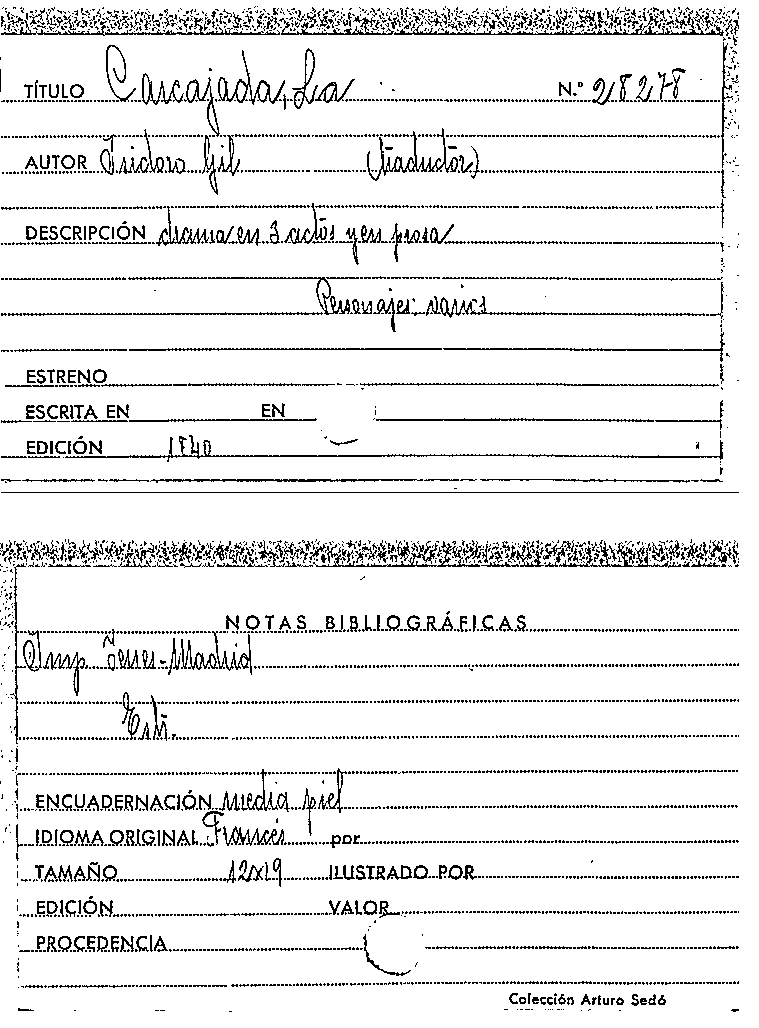 TÍTULO Carcajada, La N.º 28278
AUTOR Isidoro Gil (traductor)
DESCRIPCIÓN drama en 3 actos y en prosa
Personajes: varios
ESTRENO
ESCRITA EN EN
EDICIÓN 1840
NOTAS BIBLIOGRÁFICAS
Imp - Madrid
ENCUADERNACIÓN media piel
IDIOMA ORIGINAL Francés por
TAMAÑO 12x19 ILUSTRADO POR
EDICIÓN VALOR
PROCEDENCIA
Colección Arturo Sedó